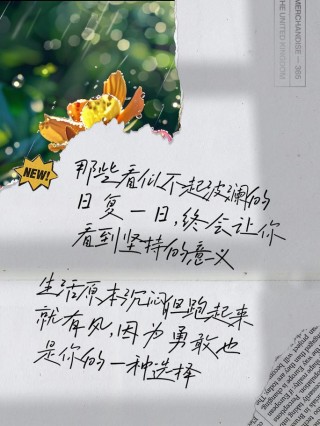 MERCHANDISE — 365
THE UNITED KINGDOM
NEW!
那些看似不起波澜的
日复一日,终会让你
看到坚持的意义
生活原本沉闷但跑起来
就有风,因为勇敢也
是你的一种选择